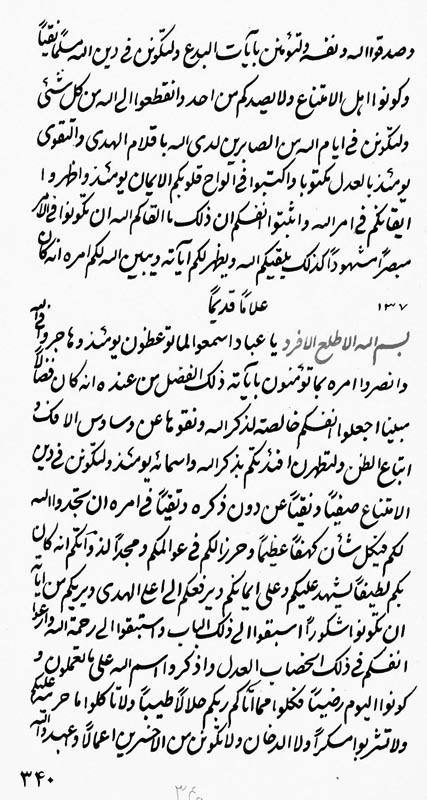 و صدقوا الله و نفسه ولتؤمنن بآيات البدع ولتكونن في دين الله مسلما نقيا
وكونوا اهل الامتناع ولا يصدكم من احد وانقطعوا الى الله من كل شئ
ولتكونن في ايام الله من الصابرين لدى الله باقلام الهدى والتقوى
يومئذ بالعدل مكتوبا واكتبوا في الواح قلوبكم الايمان يومئذ واظهروا
ايقانكم في امر الله واثبتوا انفسكم ان ذلك ما القاكم الله ان تكونوا في الامر
مبصرا مشهودا كذلك يلقيكم الله ويظهر لكم آياته ويبين الله لكم امره انه كان
علاما قديما ١٣٧
بسم الله الاطلع الافرد يا عباد اسمعوا لما توعظون يومئذ وهاجروا في الله
وانصروا امره بما تؤمنون بآياته ذلك الفضل من عنده انه كان فضالا
مبينا اجعلوا انفسكم خالصة لذكر الله ونقوها عن وساوس الافك و
اتباع الظن ولتطهرن افئدتكم بذكر الله واسمائه يومئذ ولتكونن في دين
الامتناع صفيا ونقيا عن دون ذكره وتقيا في امره ان تجدوا الله
لكم في كل شأن كهفا عظيما وحرزا لكم في عوالمكم ومجدا لذواتكم انه كان
بكم لطيفا ليشهد عليكم وعلى ايمانكم ويرفعكم الى اعلى الهدى ويريكم من آياته
ان تكونوا شكورا استبقوا الى ذلك الباب واستبقوا الى رحمة الله وادخلوا
انفسكم في ذلك العدل واذكروا اسم الله على ما تعملون و
كونوا اليوم رضيا فكلوا مما آتاكم ربكم حلالا طيبا ولا تأكلوا ما حرمه عليكم
ولا تشربوا مسكرا ولا الدخان ولا تكونن من الاخسرين اعمالا وعهد والله
٣٤٠